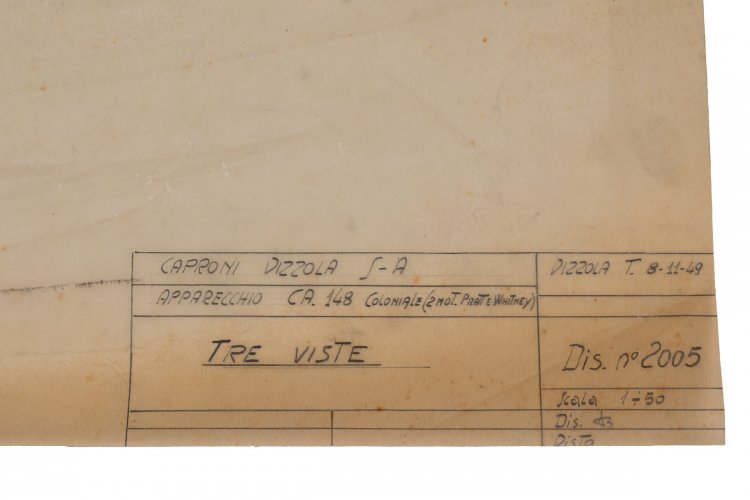 CAPRONI VIZZOLA S-A
VIZZOLA T. 8-11-49
APPARECCHIO CA. 148 COLONIALE (2 MOT. PRATT E WHITNEY)
TRE VISTE
Dis. nº 2005
Scala 1÷50
Dis.
Visto